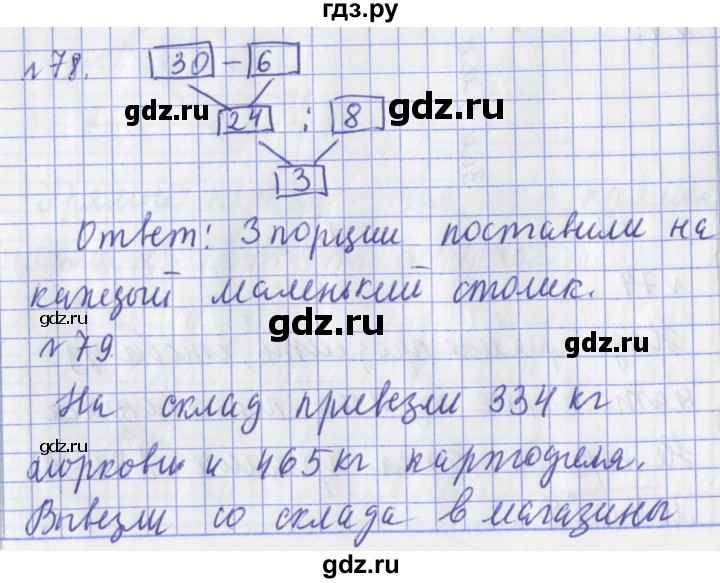 гдз.ру
№78. 30 - 6
gdz.ru gdz.ru
24 : 8
3
Ответ: 3 порции поставили на
каждый маленький столик.
gdz.ru gdz.ru gdz.ru
№79
На склад привезли 334 кг
gdz.ru
моркови и 465 кг картофеля.
Вывезли со склада в магазины
gdz.ru gdz.ru